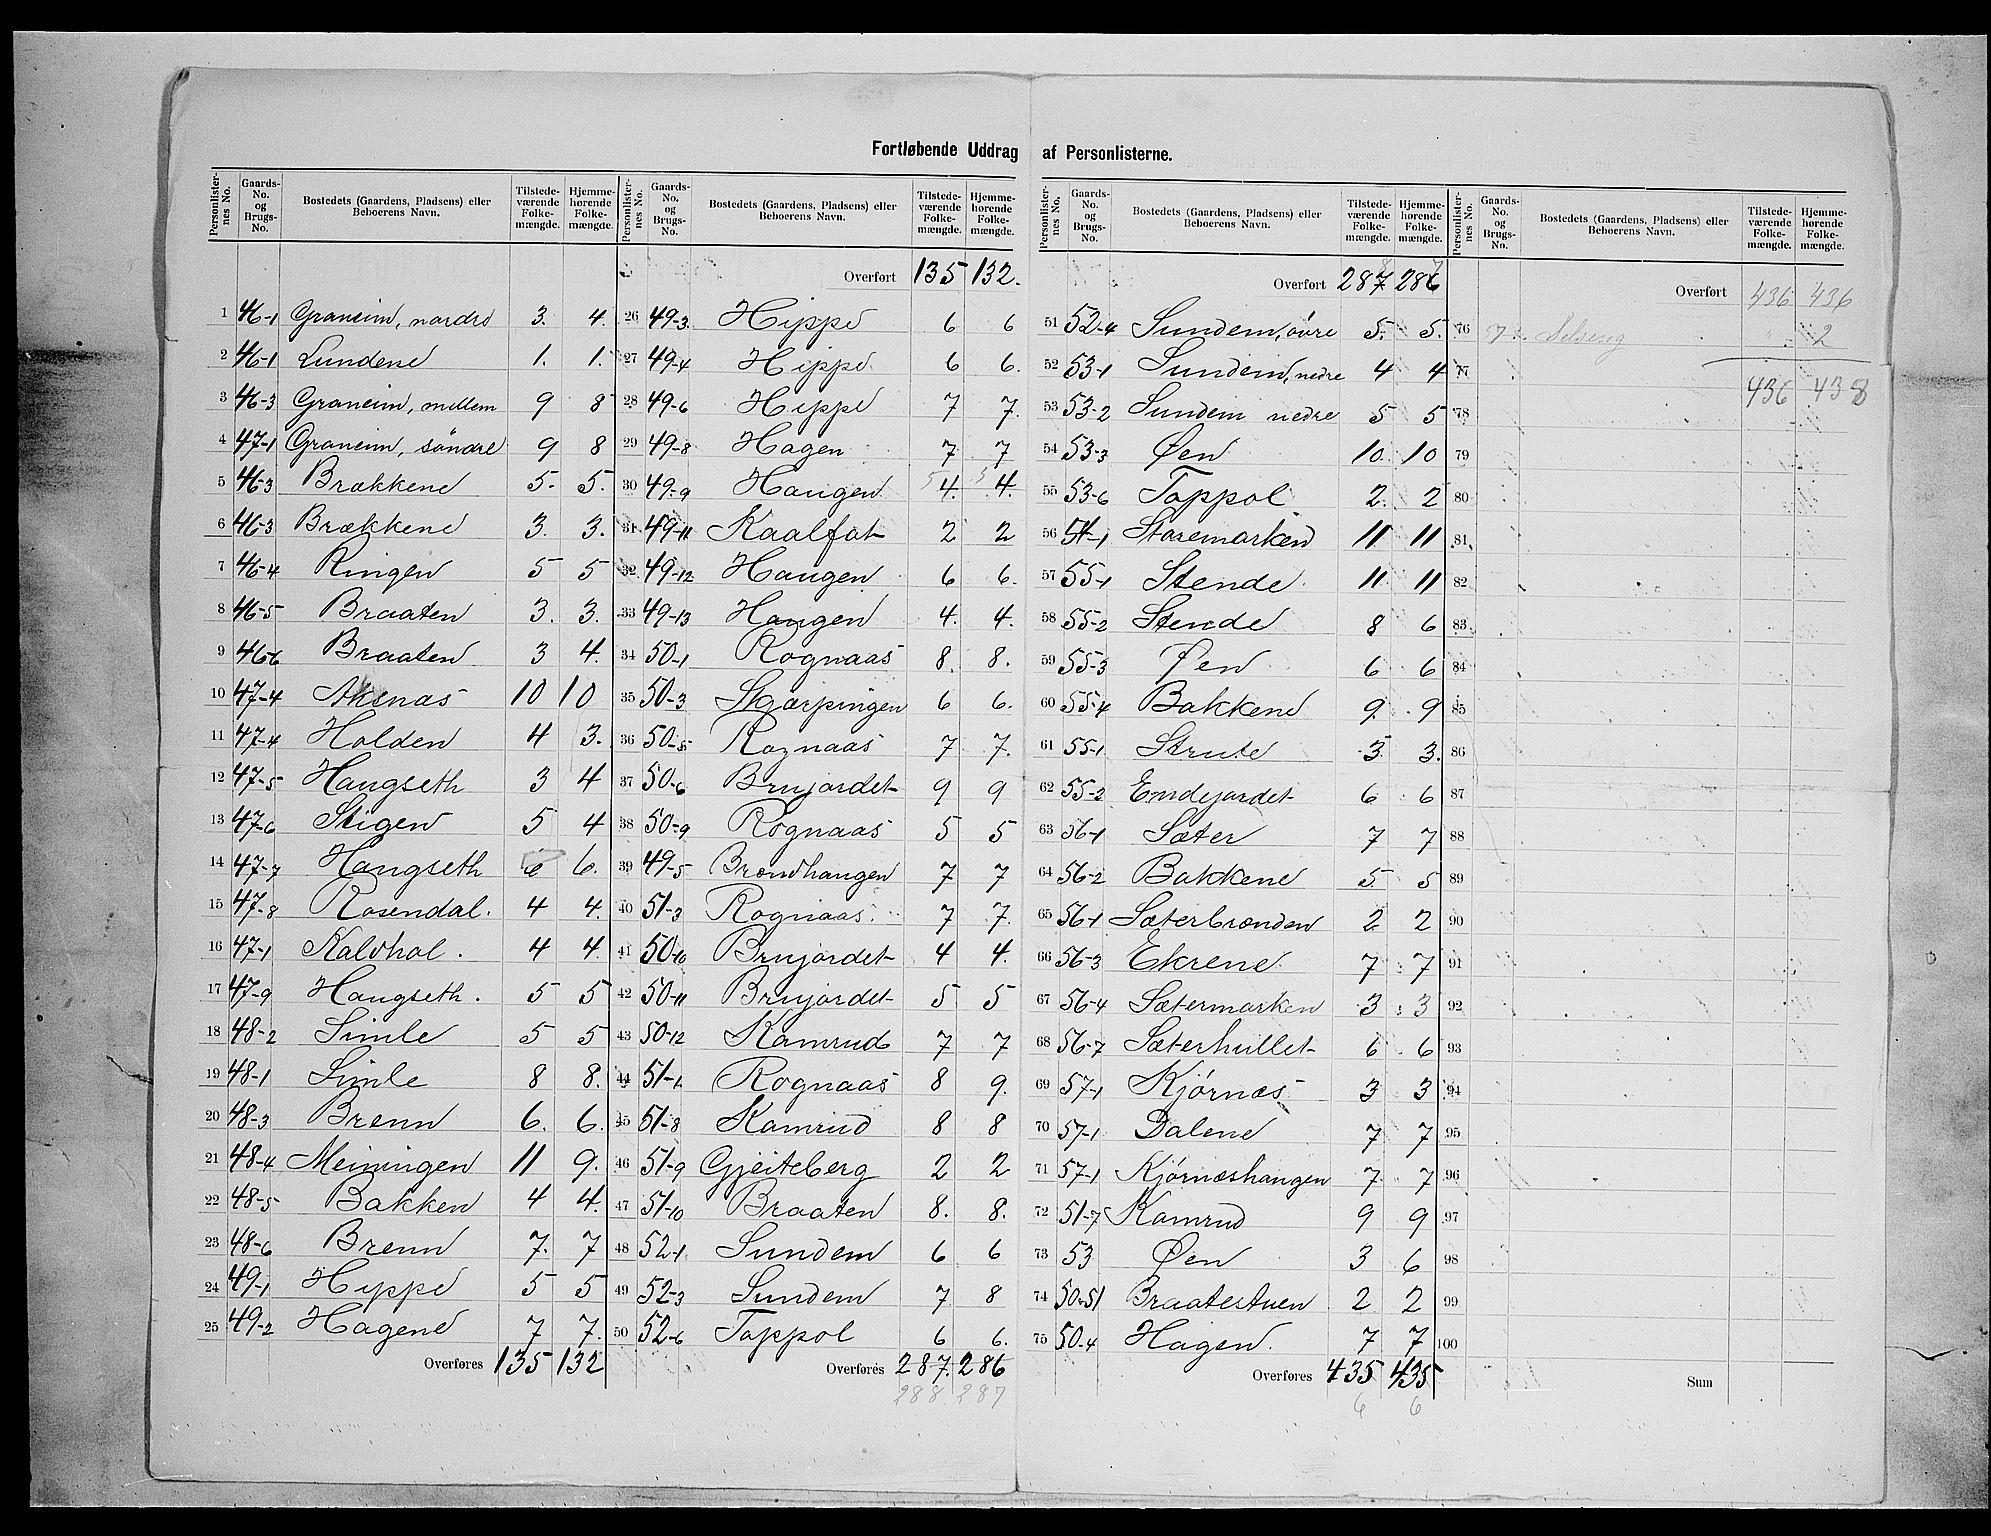 Fortløbende Uddrag af Personlisterne.
Personlister-nes No. Gaards-No. og Brugs-No. Bostedets (Gaardens, Pladsens) eller Beboerens Navn. Tilstede-værende Folke-mængde. Hjemme-hørende Folke-mængde.
1 46-1 Graneim, nordre 3. 4.
2 46-1 Lundene 1. 1.
3 46-3 Graneim, mellem 9 8
4 47-1 Graneim, söndre 9 8
5 46-3 Brækkene 5. 5.
6 46-3 Brækkene 3. 3.
7 46-4 Ringen 5 5
8 46-5 Braaten 3. 3.
9 46-6 Braaten 3 4.
10 47-4 Aknæs 10 10
11 47-4 Holden 4 3.
12 47-5 Haugseth 3 4
13 47-6 Stigen 5 4
14 47-7 Haugseth 6 6.
15 47-8 Rosendal. 4 4.
16 47-1 Kalvhol. 4 4.
17 47-9 Haugseth. 5 5
18 48-2 Simle 5 5
19 48-1 Simle 8 8.
20 48-3 Brenn 6. 6.
21 48-4 Meiningen 11 9.
22 48-5 Bakken 4 4.
23 48-6 Brenn 7. 7
24 49-1 Hippe 5 5
25 49-2 Hagene 7 7.
Overføres 135 132
Personlister-nes No. Gaards-No. og Brugs-No. Bostedets (Gaardens, Pladsens) eller Beboerens Navn. Tilstede-værende Folke-mængde. Hjemme-hørende Folke-mængde.
Overført 135 132.
26 49-3 Hippe 6 6
27 49-4 Hippe 6 6.
28 49-6 Hippe 7 7.
29 49-8 Hagen 7 7
30 49-9 Haugen 5 4. 5 4.
31 49-11 Kaalfat 2 2
32 49-12 Haugen 6 6.
33 49-13 Haugen 4. 4.
34 50-1 Rognaas 8. 8.
35 50-3 Skjærpingen 6 6.
36 50-5 Rognaas 7 7.
37 50-6 Brujordet 9 9
38 50-9 Rognaas 5 5
39 49-5 Brændhaugen 7 7
40 51-3 Rognaas. 7 7.
41 50-10 Brujordet 4 4.
42 50-11 Brujordet 5 5
43 50-12 Kamrud 7 7
44 51-1 Rognaas 8 9.
45 51-8 Kamrud 8 8
46 51-9 Gjeiteberg 2 2
47 51-10 Braaten 8. 8.
48 52-1 Sundem 6 6
49 52-3 Sundem 7 8
50 52-6 Toppol 6 6.
Overføres 287. 286
288 287
Personlister-nes No. Gaards-No. og Brugs-No. Bostedets (Gaardens, Pladsens) eller Beboerens Navn. Tilstede-værende Folke-mængde. Hjemme-hørende Folke-mængde.
Overført 287 8 286 7
51 52-4 Sundem, övre 5. 5.
52 53-1 Sundem, nedre 4 4
53 53-2 Sundem nedre 5 5
54 53-3 Øen 10. 10
55 53-6 Toppol 2. 2
56 54-1 Storemarken 11 11
57 55-1 Stende 11. 11
58 55-2 Stende 8 6
59 55-3 Øen 6 6
60 55-4 Bakkene 9. 9
61 55-1 Strute 3 3.
62 55-2 Endejordet 6 6
63 56-1 Sæter 7 7
64 56-2 Bakkene 5 5
65 56-1 Sæterbrænden 2 2
66 56-3 Ekrene 7 7
67 56-4 Sætermarken 3 3
68 56-7 Sæterhullet 6 6
69 57-1 Kjörnæs 3 3
70 57-1 Dalene 7 7
71 57-1 Kjörnæshaugen 7 7
72 51-7 Kamrud 9 9
73 53 Øen 3 6
74 50-51 Braatestuen 2 2
75 50-4 Hagen. 7 7
Overføres 435 435
6 6
Personlister-nes No. Gaards-No. og Brugs-No. Bostedets (Gaardens, Pladsens) eller Beboerens Navn. Tilstede-værende Folke-mængde. Hjemme-hørende Folke-mængde.
Overført 436 436
76 2
77 436 438
78
79
80
81
82
83
84
85
86
87
88
89
90
91
92
93
94
95
96
97
98
99
100
Sum